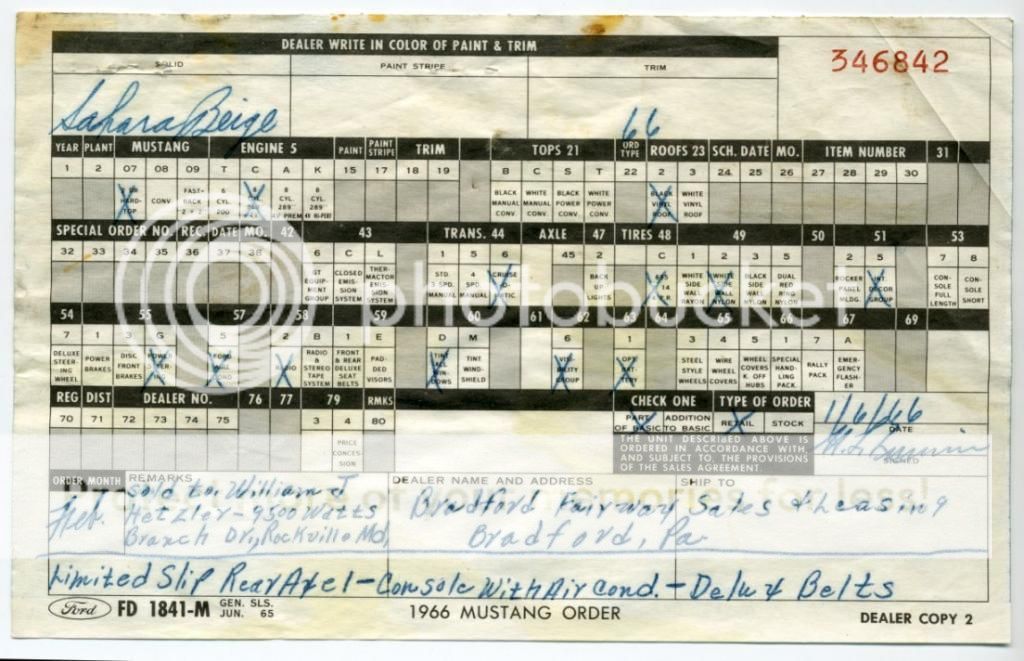 DEALER WRITE IN COLOR OF PAINT & TRIM
346842
SOLID PAINT STRIPE TRIM
Sahara Beige 66
YEAR PLANT MUSTANG ENGINE 5 PAINT PAINT STRIPE TRIM TOPS 21 ORD TYPE ROOFS 23 SCH. DATE MO. ITEM NUMBER 31
1 2 07 08 09 T C A K 15 17 18 19 B C S T 22 2 3 24 25 26 27 28 29 30
HARD-TOP CONV FAST-BACK 2+2 6 CYL. 200 8 CYL. 289 4V PREM 8 CYL. 289 4V HI-PERF BLACK MANUAL CONV. WHITE MANUAL CONV. BLACK POWER CONV. WHITE POWER CONV. BLACK VINYL ROOF WHITE VINYL ROOF
SPECIAL ORDER NO. REC. DATE MO. 42 43 TRANS. 44 AXLE 47 TIRES 48 49 50 51 53
32 33 34 35 36 37 38 6 C L 1 5 6 45 2 C 1 2 3 5 2 5 7 8
GT EQUIP. GROUP CLOSED EMISSION SYSTEM THERMACTOR EMISSION SYSTEM STD. 3 SPD. MANUAL 4 SPD. MANUAL CRUISE-O-MATIC BACK UP LIGHTS 695 14 WHITE SIDE WALL RAYON WHITE SIDE WALL NYLON BLACK SIDE WALL NYLON DUAL RED RING NYLON ROCKER PANEL MLDG. INT. DECOR GROUP CONSOLE FULL LENGTH CONSOLE SHORT
54 55 57 58 59 60 61 62 63 64 65 66 67 69
7 1 3 G 5 2 8 B 1 E D M 6 1 3 4 5 1 7 A
DELUXE STEERING WHEEL POWER BRAKES DISC FRONT BRAKES POWER STEERING RADIO RADIO & STEREO TAPE SYSTEM FRONT & REAR DELUXE SEAT BELTS PADDED VISORS TINT ALL WINDOWS TINT WINDSHIELD VISIBILITY GROUP OPT BATTERY STEEL STYLE WHEELS WIRE WHEEL COVERS WHEEL COVERS K. OFF HUBS SPECIAL HANDLING PACK. RALLY PACK EMERGENCY FLASHER
REG DIST DEALER NO. 76 77 79 RMKS CHECK ONE TYPE OF ORDER
70 71 72 73 74 75 3 4 80 PART OF BASIC ADDITION TO BASIC RETAIL STOCK 1/6/66
DATE
PRICE CONCESSION
THE UNIT DESCRIBED ABOVE IS
ORDERED IN ACCORDANCE WITH,
AND SUBJECT TO, THE PROVISIONS
OF THE SALES AGREEMENT.
SIGNED
ORDER MONTH REMARKS DEALER NAME AND ADDRESS SHIP TO
Feb. Sold to. William J
Hetzler - 9500 Watts
Branch Dr, Rockville Md,
Bradford Fairway Sales & Leasing
Bradford, Pa.
Limited Slip Rear Axel - Console With Air Cond. - Delux Belts
Ford FD 1841-M GEN. SLS. JUN. 65 1966 MUSTANG ORDER DEALER COPY 2
photobucket